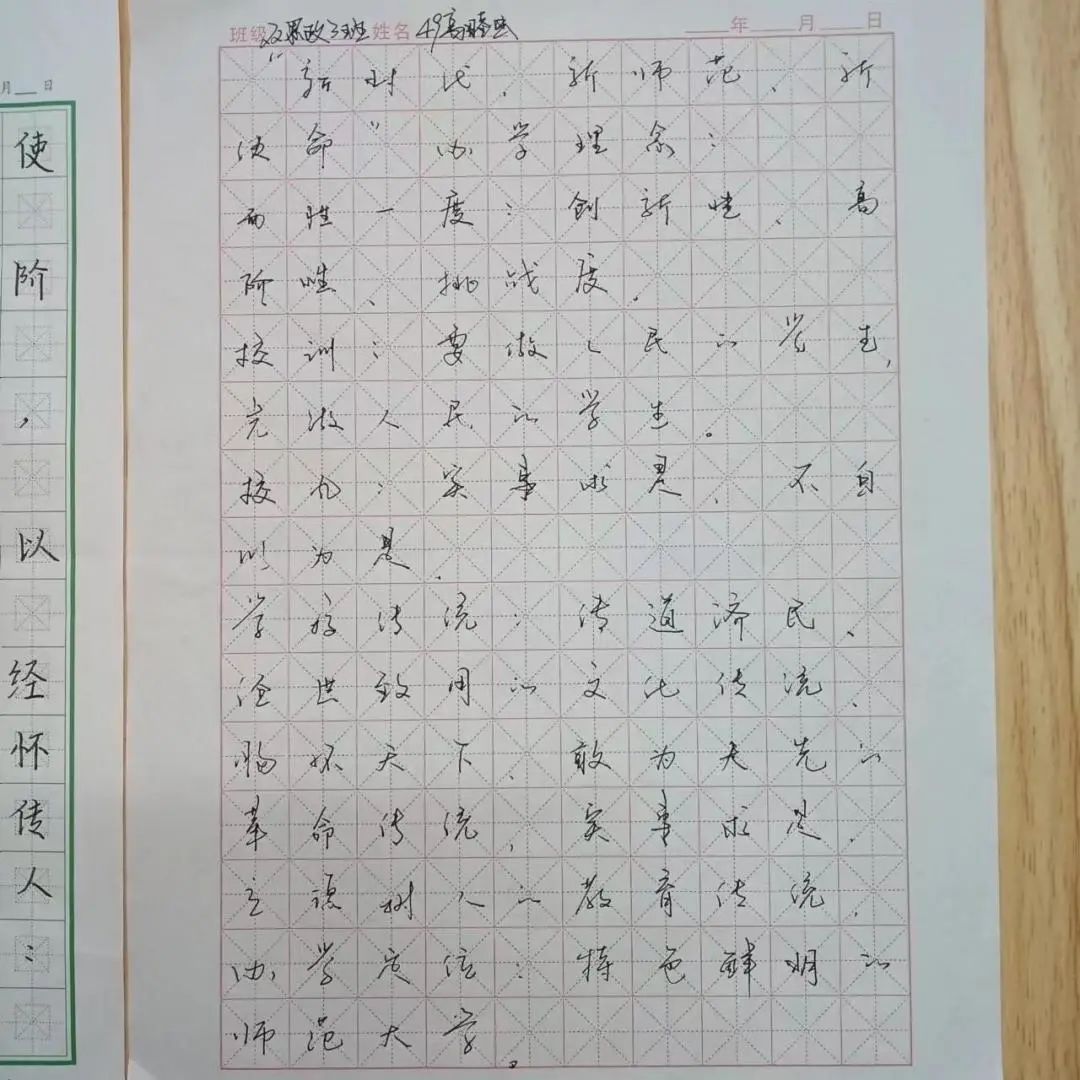 月 日
使
阶
,
以
经
怀
传
人
:
班级 思政3班 姓名 49高 年 月 日
“新时代、新师范、新
使命”办学理念:
两性一度:创新性、高
阶性、挑战度.
校训:要做人民的先生,
先做人民的学生。
校风:实事求是、不自
以为是.
学校传统:传道济民、
经世致用的文化传统、
胸怀天下、敢为天先的
革命传统,实事求是、
立德树人的教育传统.
办学定位:特色鲜明的
师范大学.